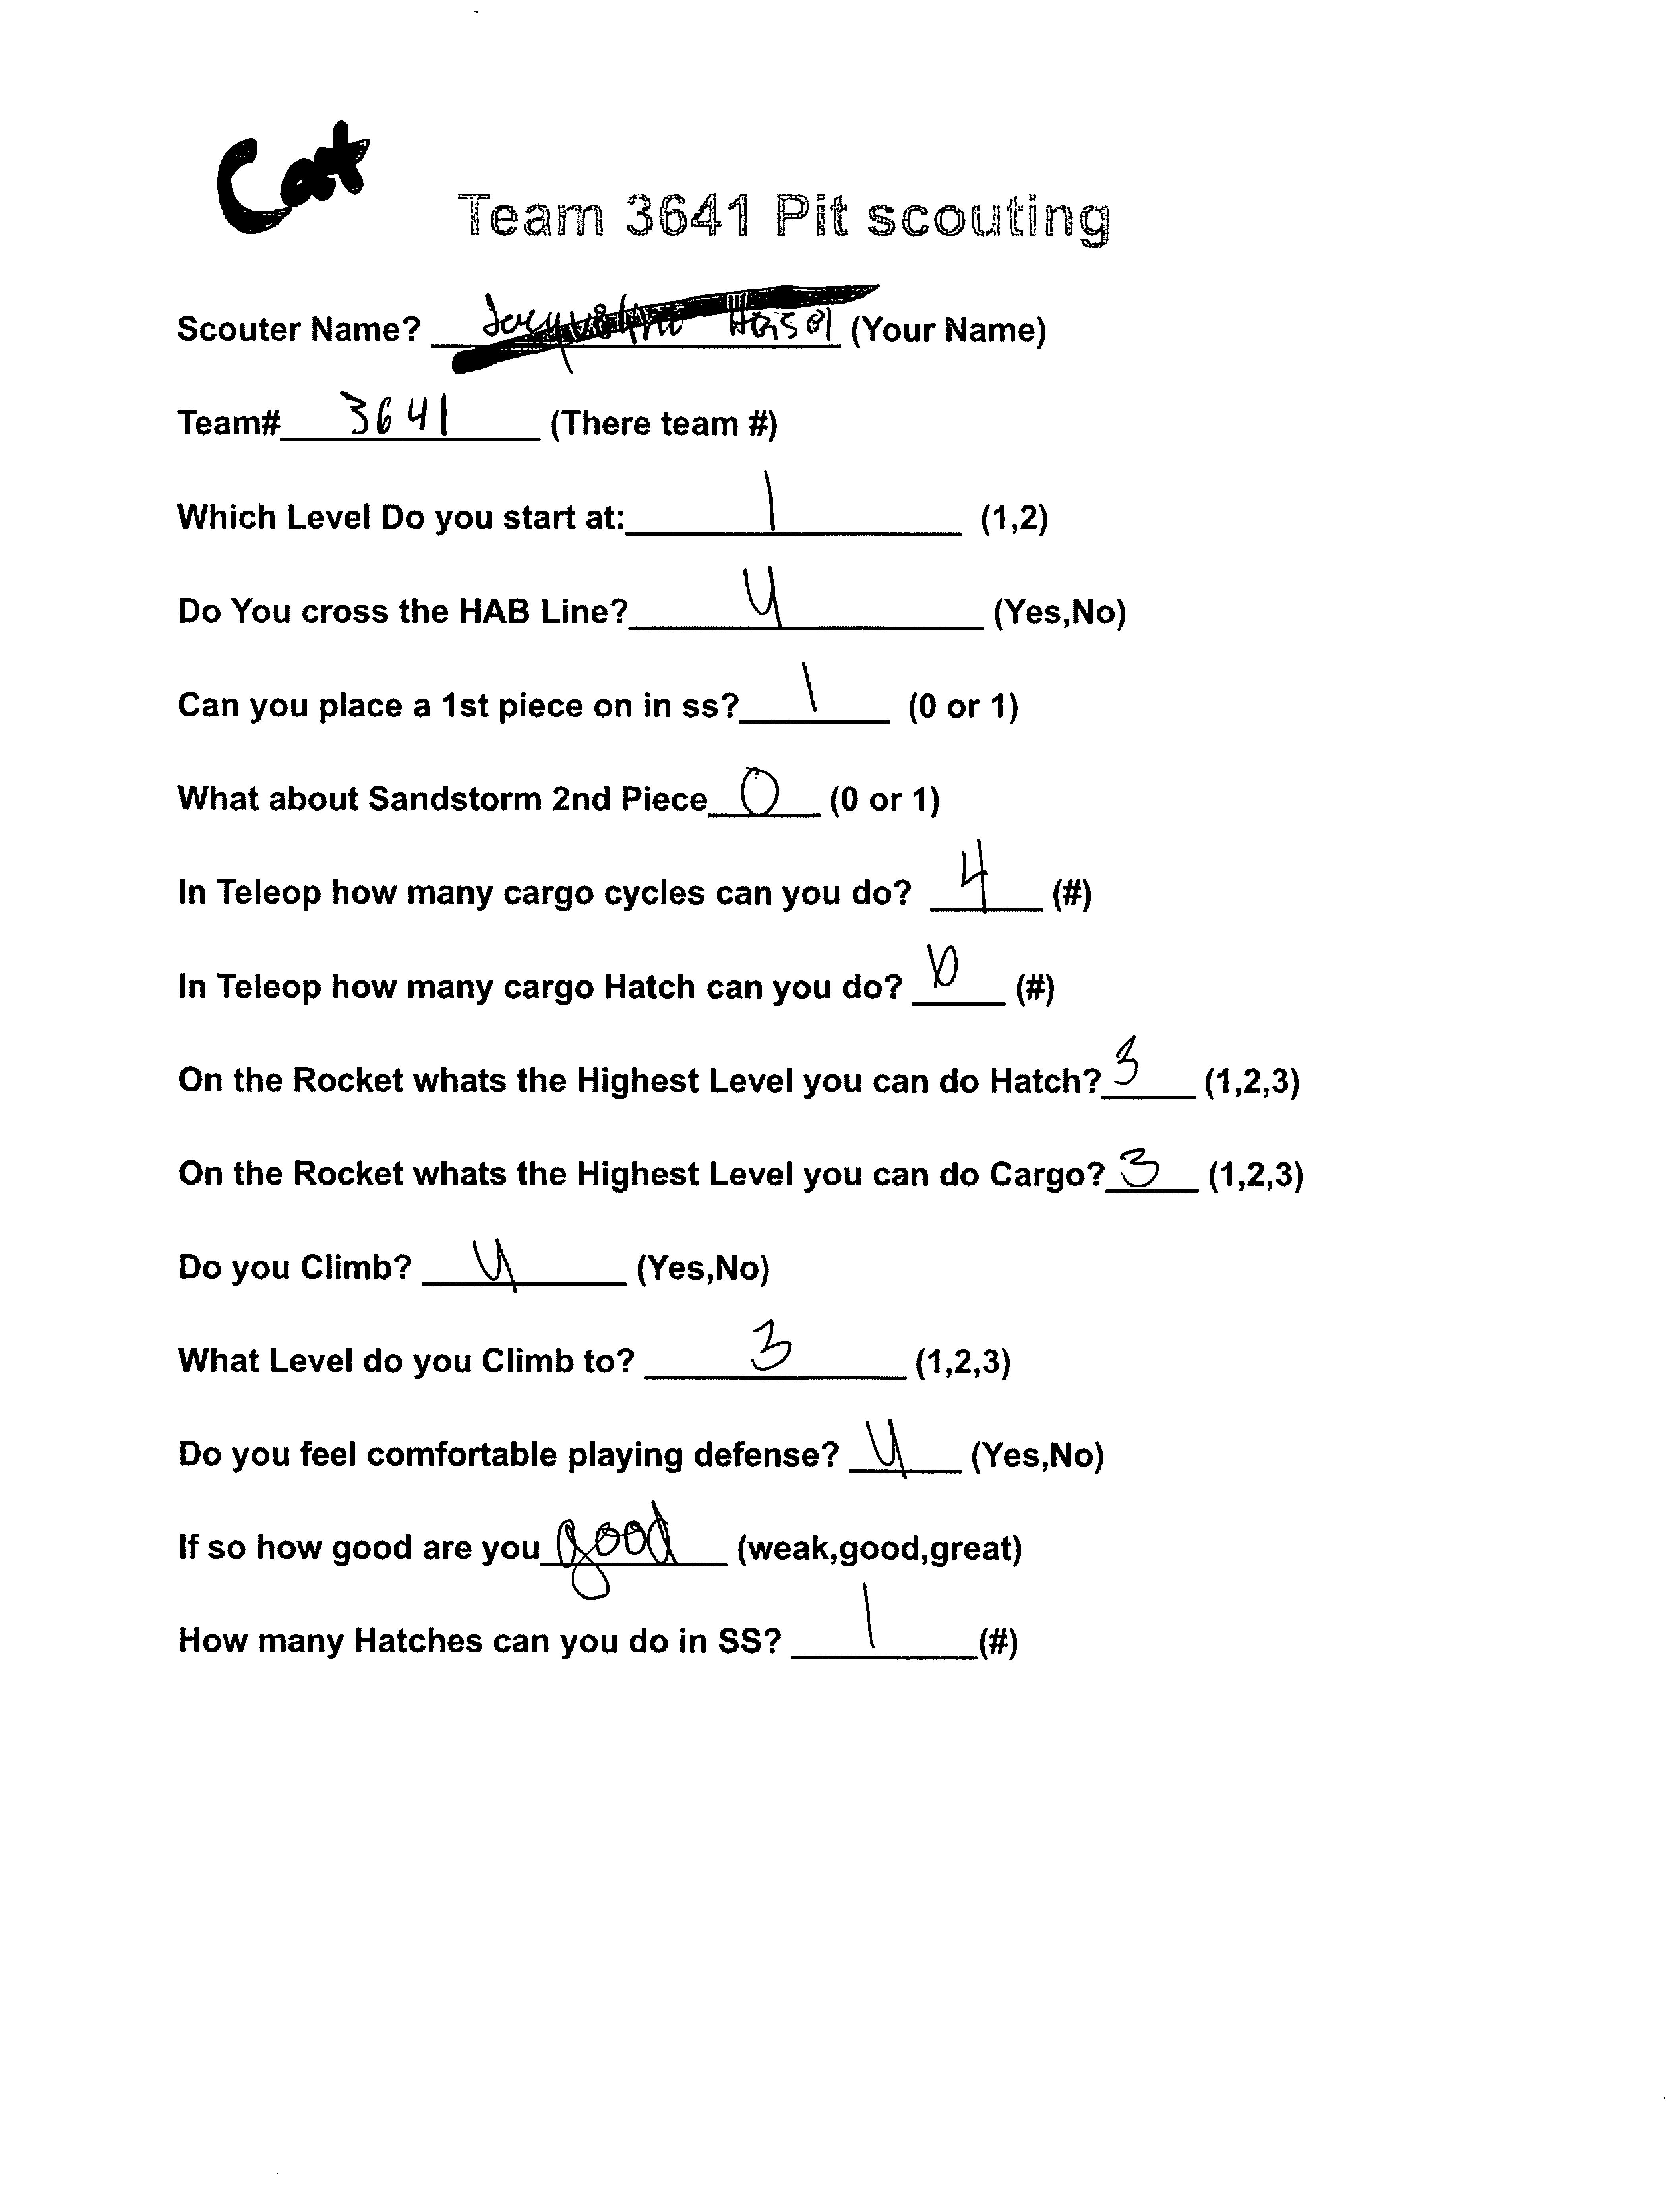 Cat
Team 3641 Pit scouting
Scouter Name? (Your Name)
Team# 3641 (There team #)
Which Level Do you start at: 1 (1,2)
Do You cross the HAB Line? y (Yes,No)
Can you place a 1st piece on in ss? 1 (0 or 1)
What about Sandstorm 2nd Piece 0 (0 or 1)
In Teleop how many cargo cycles can you do? 4 (#)
In Teleop how many cargo Hatch can you do? (#)
On the Rocket whats the Highest Level you can do Hatch? 3 (1,2,3)
On the Rocket whats the Highest Level you can do Cargo? 3 (1,2,3)
Do you Climb? y (Yes,No)
What Level do you Climb to? 3 (1,2,3)
Do you feel comfortable playing defense? y (Yes,No)
If so how good are you good (weak,good,great)
How many Hatches can you do in SS? 1 (#)